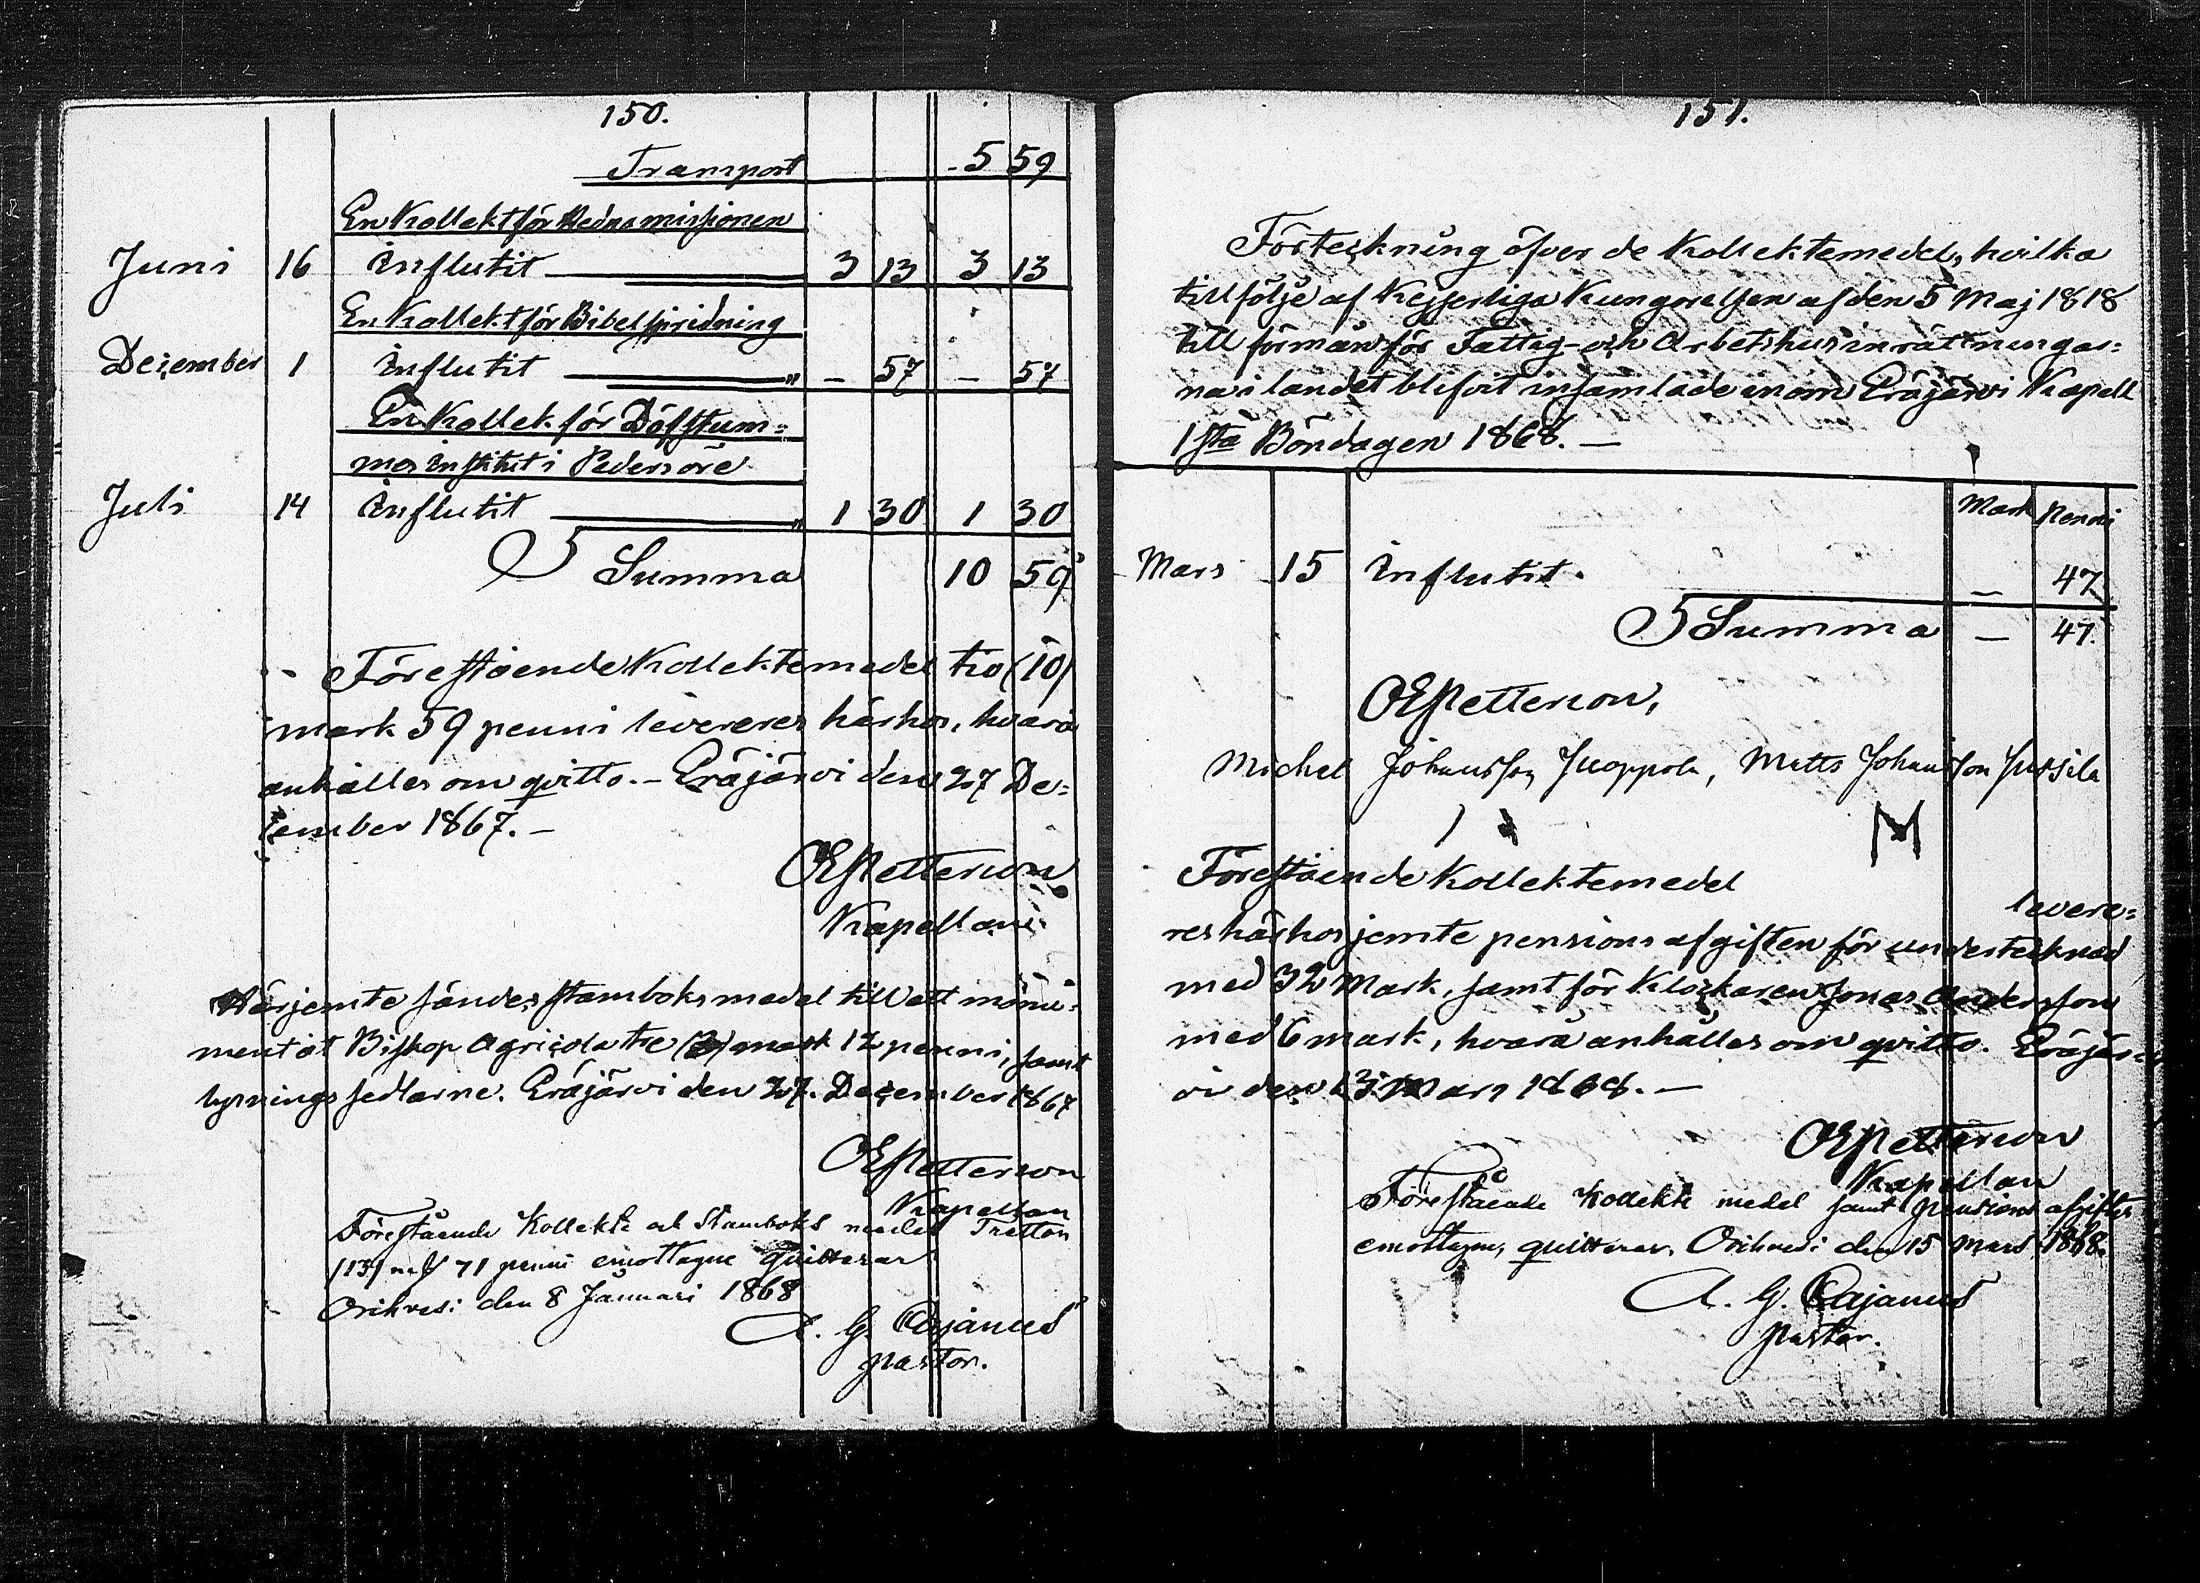 150.
Transport 5 59
En Kollekt för Hednamissionen
Juni 16 Influtit 3 13 3 13
En Kollekt för Bibelspridning
December 1 Influtit " — 57 — 57
En Kollek för Döfstum=
mes institut i Pedersöre
Juli 14 Influtit " 1 30 1 30
Summa 10 59
Förestående Kollektemedel tio (10)
mark 59 penni levereres härhos, hvarå
anhålles om qvitto. – Eräjärvi den 27 De=
cember 1867. –
OEPetterson
Kapellan.
Härjemte sändes stamboksmedel till ett monu-
ment åt Biskop Agricola tre (3) mark 12 penni, samt
lysningssedlarne. Eräjärvi den 27. December 1867
OEPetterson
Kapellan
Förestående Kollekte och Stamboks medel Tretton
(13) 71 penni emottagne Quitterar
Orihvesi den 8 Januari 1868
A. G. Cajanus
pastor.
151.
Förteckning öfver de Kollektemedel, hvilka
till följe af Kejserliga Kungörelsen af den 5 Maj 1818
till förmån för Fattig- och Arbetshusinrättningar=
na i landet blifvit insamlade inom Eräjärvi Kapell
1sta Böndagen 1868. —
Mark Penni
Mars 15 Influtit. — 47
Summa — 47.
OEPetterson,
Michel Johansson Juoppola, Matts Johansson Jussila
M
Förestående Kollektemedel levere=
res härhos jemte pensions afgiften för undertecknad
med 32 Mark, samt för Klockaren Jonas Andersson
med 6 mark, hvarå anhålles om qvitto. Eräjär
vi den 13 Mars 1868. —
OEPetterson
Kapellan
Förestående Kollekte medel samt pensions afgifter
emottagne, quitterar, Orihvesi den 15 Mars 1868.
A. G. Cajanus
pastor.